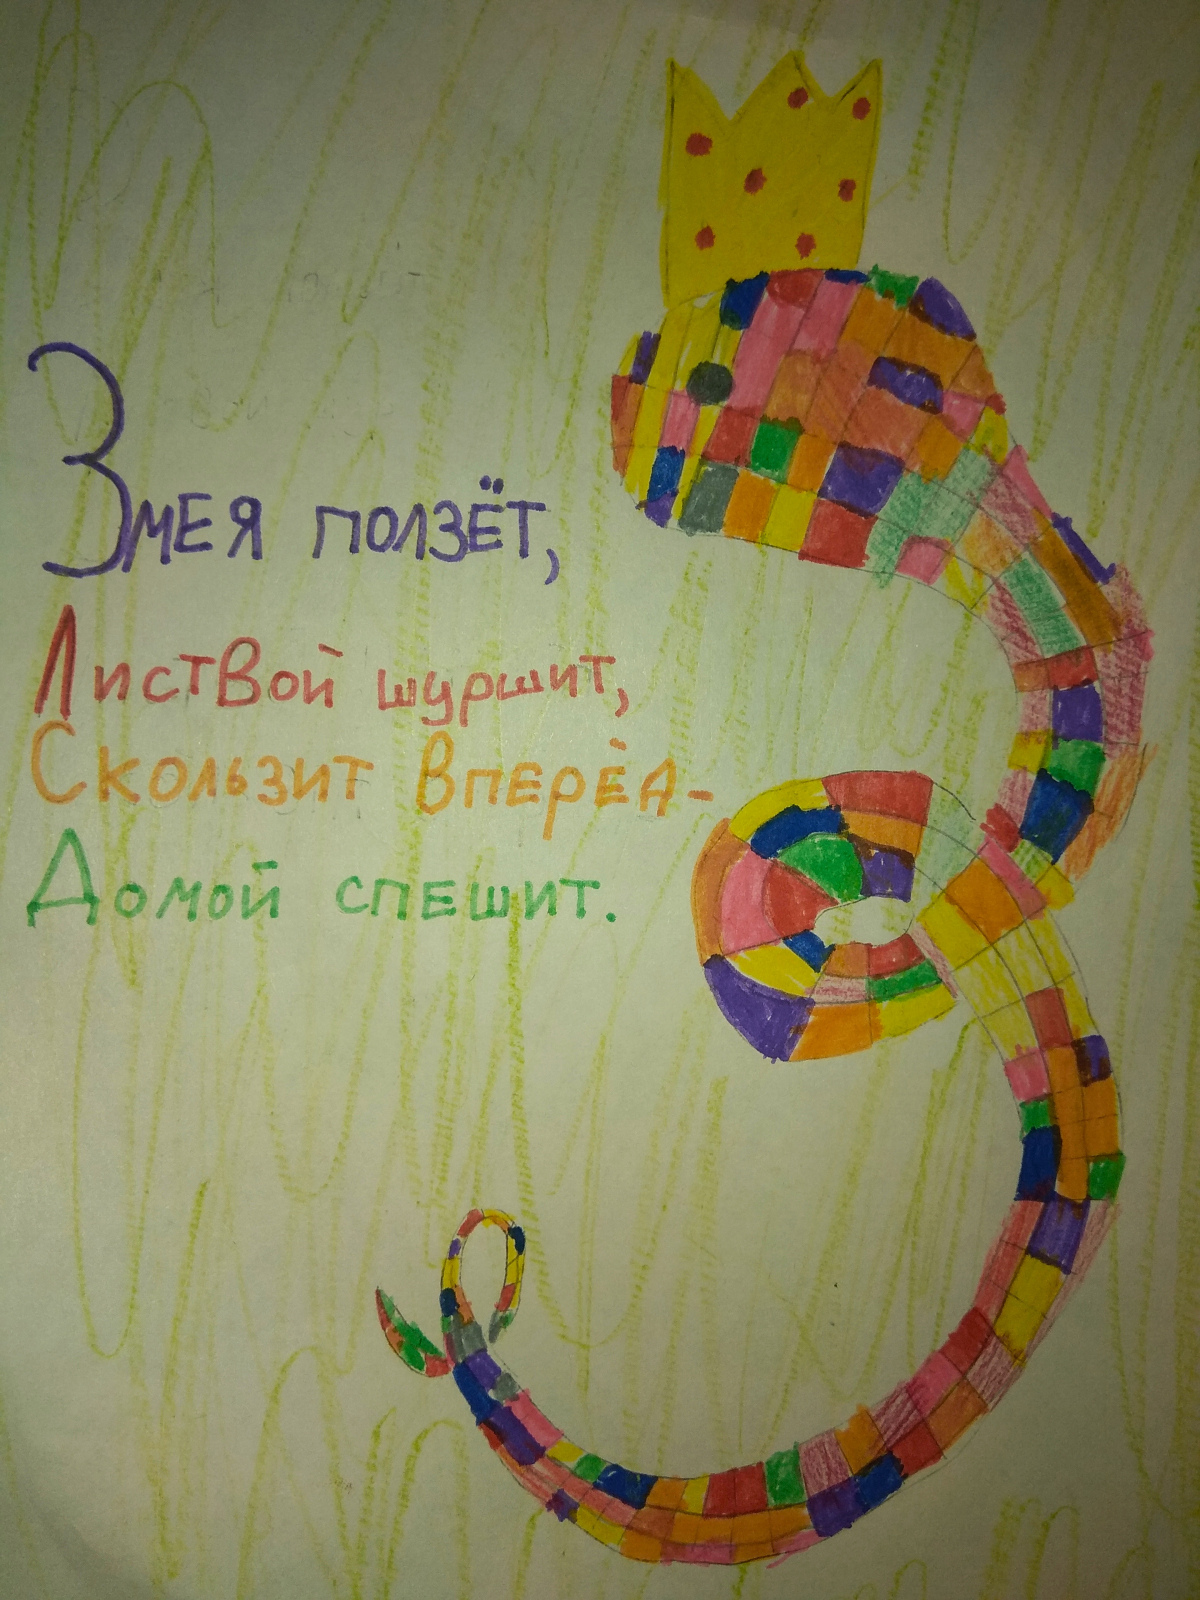 Змея ползёт,
Листвой шуршит,
Скользит вперёд-
Домой спешит.